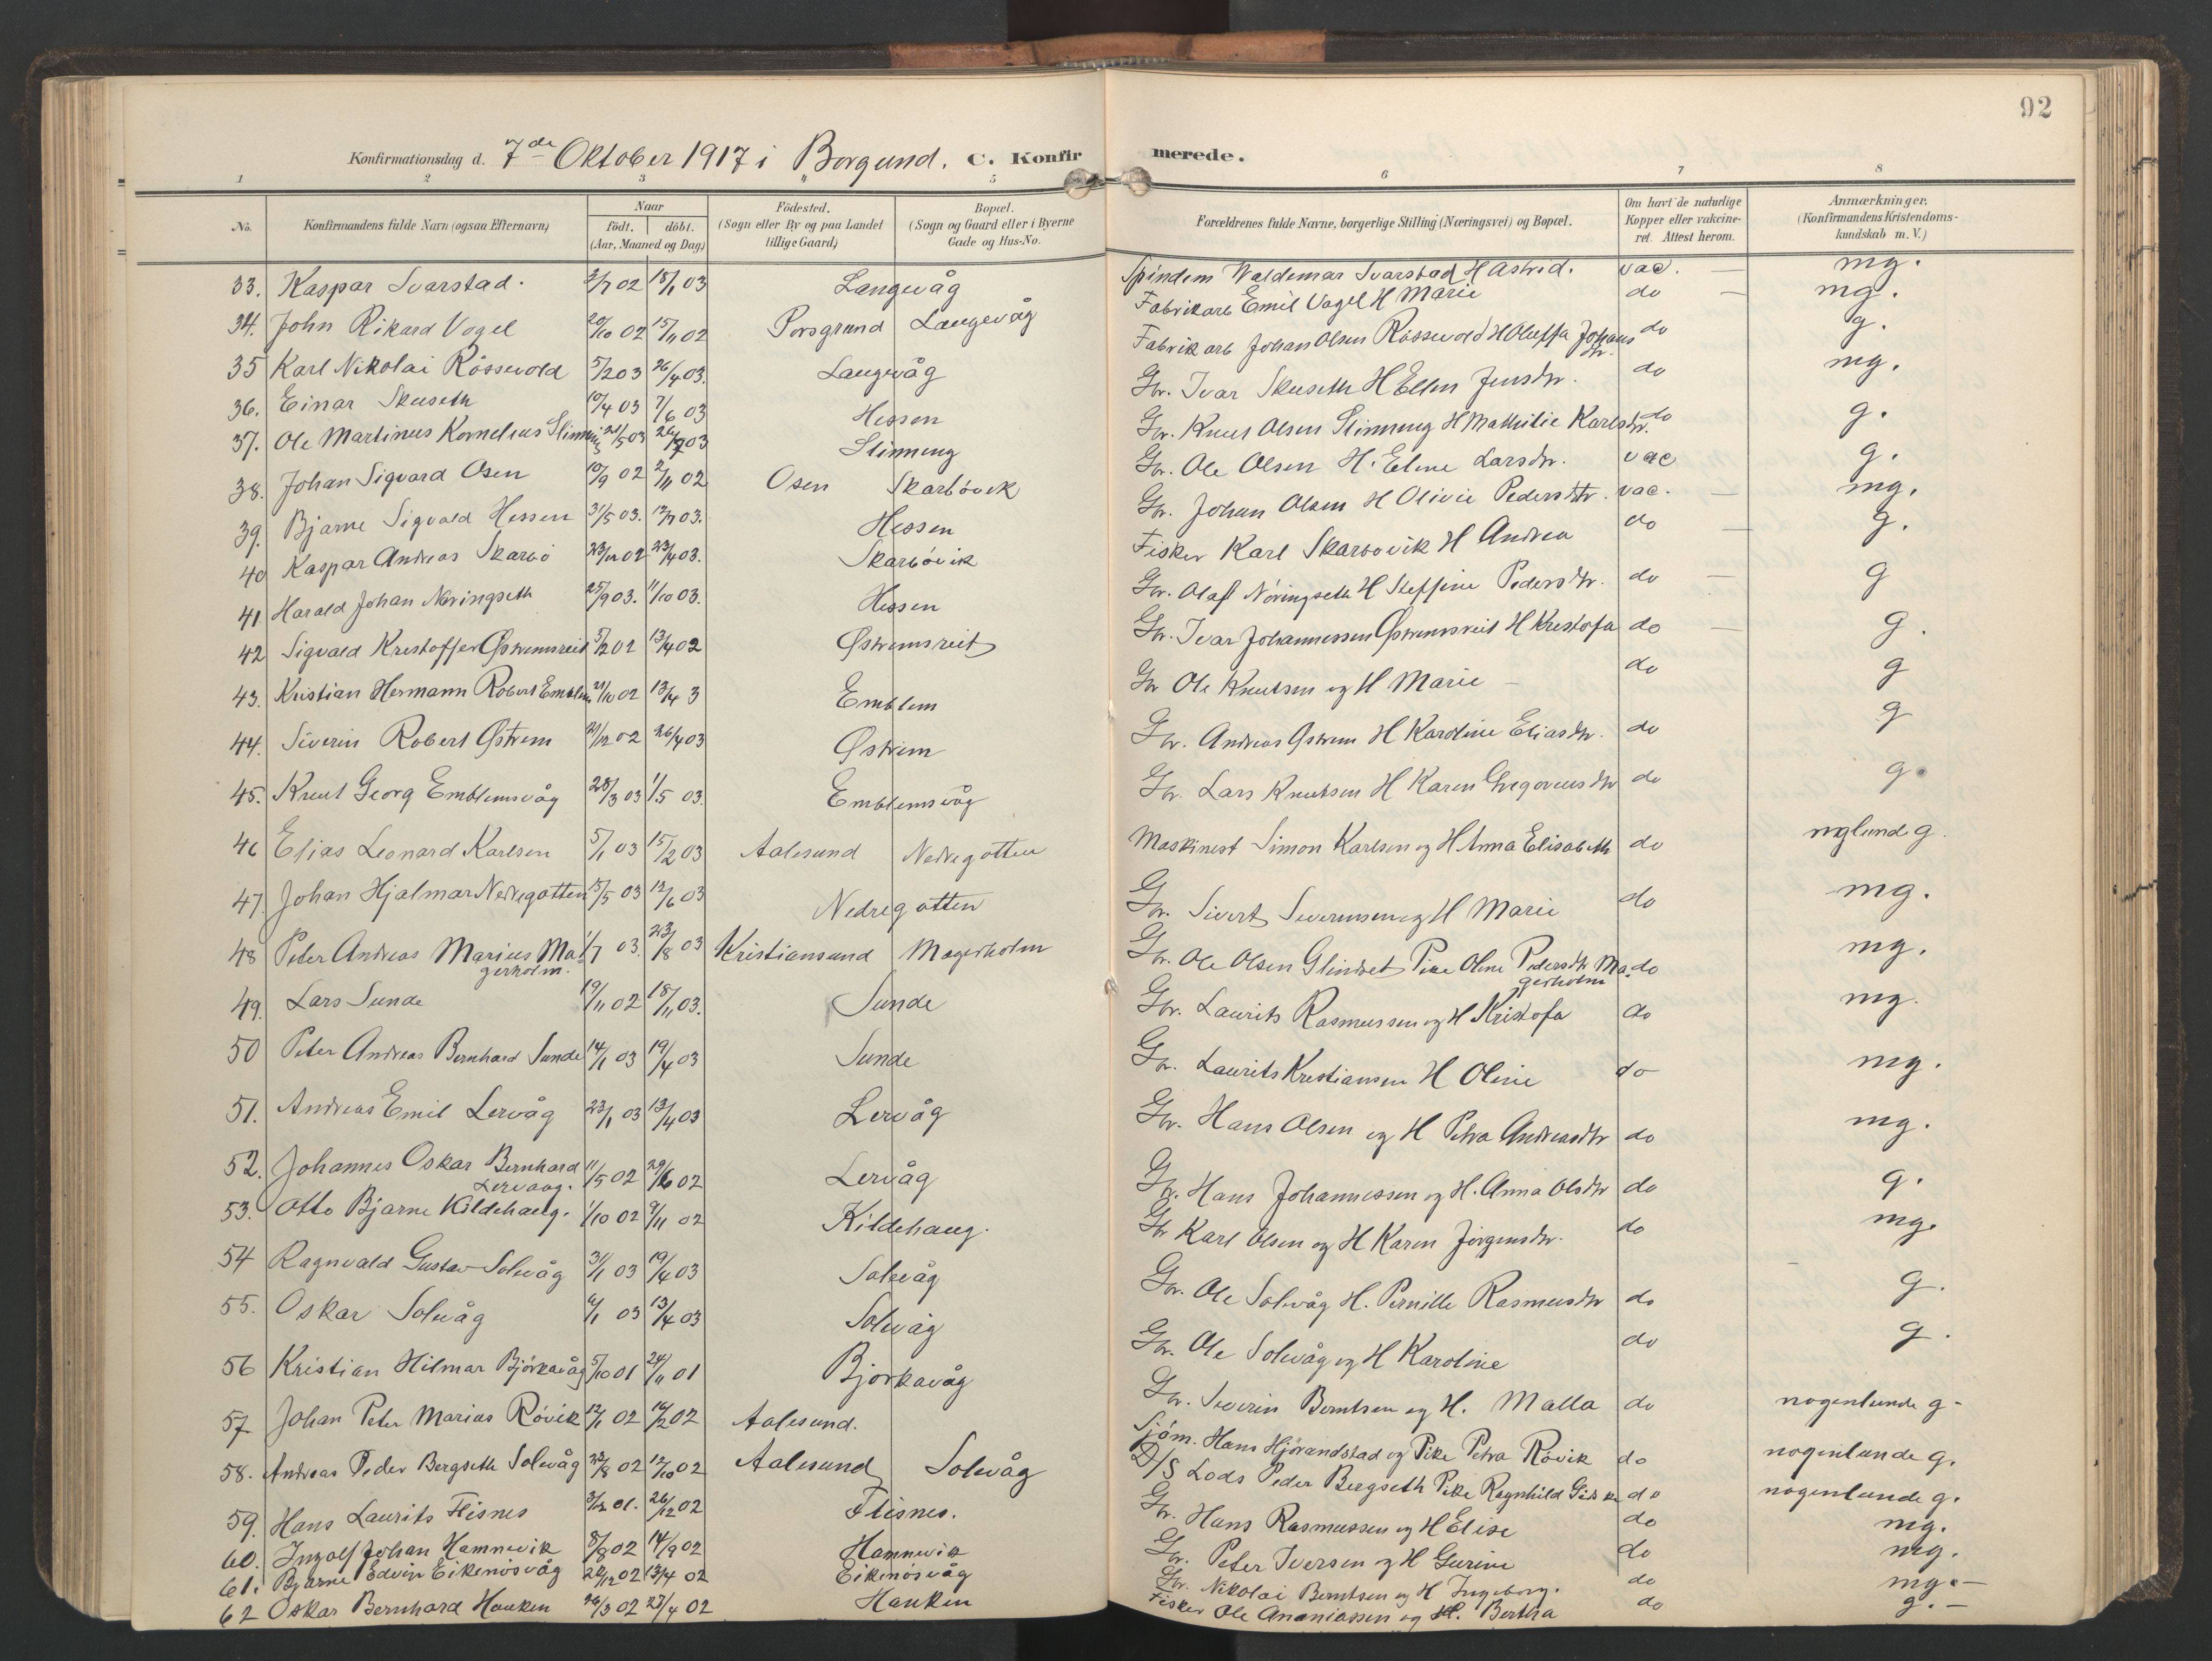 92
Konfirmationsdag d. 7de Oktober 1917 i Borgund. C. Konfirmerede.
1 2 3 4 5 6 7 8
No. Konfirmandens fulde Navn (ogsaa Efternavn) Naar født. døbt. (Aar, Maaned og Dag) Fødested. (Sogn eller By og paa Landet tillige Gaard) Bopæl. (Sogn og Gaard eller i Byerne Gade og Hus-No. Forældrenes fulde Navne, borgerlige Stilling (Næringsvei) og Bopæl. Om havt de naturlige Kopper eller vakcineret. Attest herom. Anmærkninger. (Konfirmandens Kristendomskundskab m. V.)
33. Kaspar Svarstad. 2/7 02 18/1 03 Langevåg Spindem Waldemar Svarstad H Astrid. vac. — mg.
34. John Rikard Vogel 20/10 02 15/11 02 Porsgrund Langevåg Fabrikarb Emil Vogel H Marie do — mg.
35 Karl Nikolai Røssevold 5/2 03 26/4 03. Langevåg Fabrikarb Johan Olsen Røssevold H Oluffa Johansdtr. do g.
36. Einar Skuseth 10/4 03 7/6 03 Hessen Gbr. Ivar Skuseth H Ellen Jensdtr. do mg.
37. Ole Martinus Kornelius Slinning 21/5 03 26/7 03 Slinning Gbr. Knut Olsen Slinning H Mathilie Karlsdtr. do g.
38. Johan Sigvard Osen 10/9 02 2/11 02 Osen Skarbøvik Gbr. Ole Olsen H. Eline Larsdtr. vac g.
39. Bjarne Sigvald Hessen 31/5 03. 12/7 03. Hessen Gbr. Johan Olsen H Olivie Pedersdtr. vac. — mg.
40 Kaspar Andreas Skarbø 23/12 02 23/4 03. Skarbøvik Fisker Karl Skarbøvik H Andrea do — g.
41 Harald Johan Nøringseth 25/9 03. 11/10 03. Hessen Gbr. Olaf Nøringseth H Steffine Pedersdtr. do — g
42 Sigvald Kristoffer Østremsreit 5/2 02 13/4 02 Østremsreit Gbr. Ivar Johannessen Østremsreit H Kristofa do — g.
43. Kristian Hermann Robert Emblem 21/10 02 13/4 3 Emblem Gbr Ole Knutsen og H Marie — do g
44. Siverin Robert Østrem 21/12 02 26/4 03 Østrem Gbr. Andreas Østrem H Karoline Eliasdtr. do g
45. Knut Georg Emblemsvåg 28/3 03 1/5 03. Emblemsvåg Gbr. Lars Knutsen H Karen Gregoriusdtr do g.
46 Elias Leonard Karlsen 5/1 03 15/2 03 Aalesund Nedregotten Maskinest Simon Karlsen og H Anna Elisabeth do nglund g.
47. Johan Hjalmar Nedregotten 15/5 03 12/6 03 Nedregotten Gbr. Sivert Severinsen og H Marie do mg.
48 Peter Andreas Marius Magerholm. 1/7 03. 23/8 03 Kristiansund Magerholm Gbr. Ole Olsen Glindset Pike Oline Pedersdtr Magerholm do mg.
49. Lars Sunde 19/11 02 18/11 03. Sunde Gbr. Laurits Rasmussen og H Kristofa do mg.
50 Peter Andreas Bernhard Sunde 14/1 03 19/4 03 Sunde Gbr. Laurits Kristiansen H Oline do mg.
51. Andreas Emil Lervåg 23/1 03 13/4 03 Lervåg Gbr. Hans Olsen og H Petra Andreasdtr do mg.
52. Johannes Oskar Bernhard Lervaag. 11/5 02 29/6 02 Lervåg Gbr. Hans Johannessen og H. Anna Olsdtr do g.
53. Otto Bjarne Kildehaug. 1/10 02 9/11 02 Kildehaug. Gbr Karl Olsen og H Karen Jørgensdtr. do mg.
54 Ragnvald Gustav Solevåg 31/1 03 19/4 03 Solevåg Gbr. Ole Solevåg H. Pernille Rasmusdtr do g.
55. Oskar Solevåg 6/1 03 13/4 03 Solevåg Gbr. Ole Solevåg og H Karoline do g.
56 Kristian Hilmar Bjørkavåg 5/10 01 24/11 01 Bjørkavåg Gbr. Severin Berntsen og H. Malla do nogenlunde g.
57. Johan Peter Marius Røvik 12/1 02 16/2 02 Aalesund. Sjøm. Hans Hjørandstad og Pike Petra Røvik do nogenlunde g.
58. Andreas Peder Bergseth Solevåg 23/8 02 12/10 02 Aalesund Solevåg D/S Lods Peder Bergseth Pike Ragnhild Giske do nogenlunde g.
59. Hans Laurits Flisnes 3/12 01. 26/12 02 Flisnes. Gbr. Hans Rasmussen og H Elise do mg.
60. Ingolf Johan Hamnevik 8/8 02 14/9 02 Hamnevik Gbr. Peter Iversen og H Gurine do mg.
61. Bjarne Edvin Eikenosvåg 22/12 02 13/4 02 Eikenosvåg Gbr. Nikolai Berntsen og H Ingeborg. do mg. —
62 Oskar Bernhard Hauken 26/3 02 27/4 02 Hauken Fisker Ole Ananiassen og H. Bertha do g. —